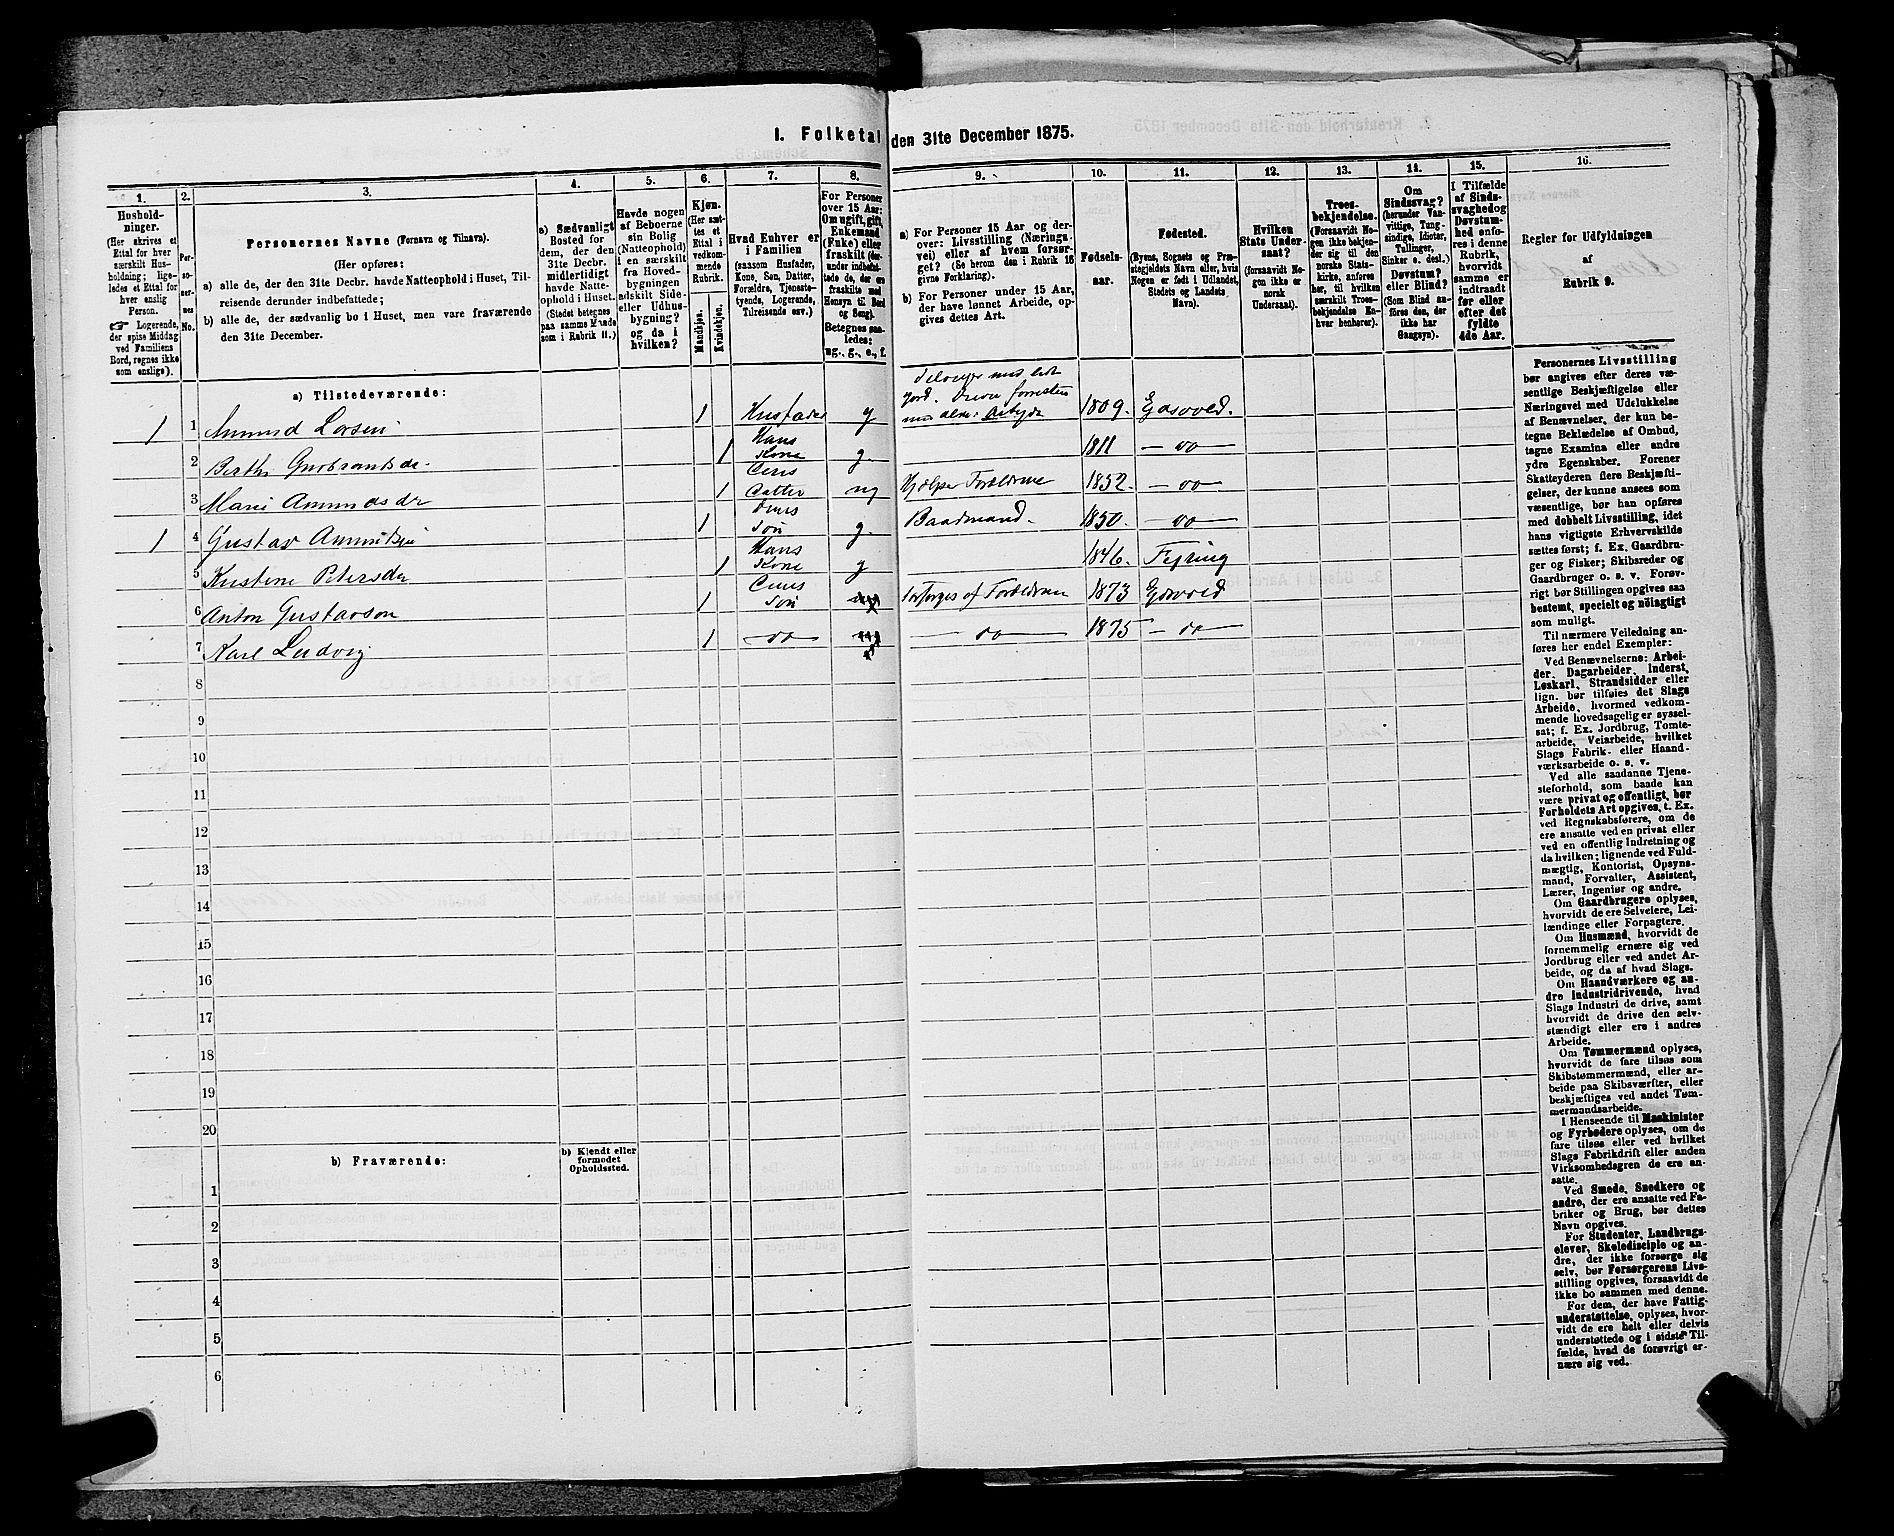 I. Folketal den 31te December 1875.
1. 2. 3. 4. 5. 6. 7. 8. 9. 10. 11. 12. 13. 14. 15. 16.
Hushold-
ninger.
(Her skrives et
Ettal for hver
særskilt Hus-
holdning; lige-
ledes et Ettal for
hver enslig
Person.
☞ Logerende,
der spise Middag
ved Familiens
Bord, regnes ikke
som enslige).
Per-
so-
ner-
nes
No.
Personernes Navne (Fornavn og Tilnavn).
(Her opføres:
a) alle de, der den 31te Decbr. havde Natteophold i Huset, Til-
reisende derunder indbefattede;
b) alle de, der sædvanlig bo i Huset, men vare fraværende
den 31te December.
a) Sædvanligt
Bosted for
dem, der den
31te Decbr.
midlertidigt
havde Natte-
ophold i Huset.
(Stedet betegnes
paa samme Maade
som i Rubrik 11.)
Havde nogen
af Beboerne
sin Bolig
(Natteophold)
i en særskilt
fra Hoved-
bygningen
adskilt Side-
eller Udhus-
bygning?
og da i
hvilken?
Kjøn.
(Her sæt-
tes et
Ettal i
vedkom-
mende
Rubrik.
Mandkjøn.
Kvindekjøn.
Hvad Enhver er
i Familien
(saasom Husfader,
Kone, Søn, Datter,
Forældre, Tjeneste-
tyende, Logerende,
Tilreisende osv.)
For Personer
over 15 Aar:
Om ugift, gift,
Enkemand
(Enke) eller
fraskilt (der-
under indbefat-
tede de, der ere
fraskilte med
Hensyn til Bord
og Seng).
Betegnes saa-
ledes:
ug., g., e., f.
a) For Personer 15 Aar og der-
over: Livsstilling (Nærings-
vei) eller af hvem forsør-
get? (Se herom den i Rubrik 16
givne Forklaring).
b) For Personer under 15 Aar,
der have lønnet Arbeide, op-
gives dettes Art.
Fødsels-
aar.
Fødested.
(Byens, Sognets og Præ-
stegjeldets Navn eller, hvis
Nogen er født i Udlandet,
Stedets og Landets
Navn).
Hvilken
Stats Under-
saat?
(forsaavidt No-
gen ikke er
norsk
Undersaat).
Troes-
bekjendelse.
(Forsaavidt No-
gen ikke bekjen-
der sig til den
norske Stats-
kirke, anføres
her, til hvilken
særskilt Troes-
bekjendelse En-
hver henhører).
Om
Sindssvag?
(herunder Van-
vittige, Tung-
sindige, Idioter,
Tullinger,
Sinker o. desl.).
Døvstum?
eller Blind?
(Som Blind an-
føres den, der
ikke har
Gangsyn).
I Tilfælde
af Sinds-
svaghed og
Døvstum-
hed anfø-
res i denne
Rubrik,
hvorvidt
samme er
indtraadt
før eller
efter det
fyldte
4de Aar.
Regler for Udfyldningen
af
Rubrik 9.
a) Tilstedeværende:
1 1 Amund Larsen 1 Husfader g Selveier med lidt jord. 1809. Edsvold.
2 Berthe Gudbrandsdr. 1 Hans Kone g. 1811 — do —
3 Marie Amundsdr 1 Deres Datter ug Hjælper Forældrene 1852. — do —
1 4 Gustav Amundsen 1 Deres Søn g. Baadmand. 1850. — do —
5 Kristine Petersdr 1 Hans Kone g 1846. Fejring
6 Anton Gustavson 1 Deres Søn ug Forsørges af Forældrene 1873 Edsvold
7 Karl Ludvig 1 — do — ug — do — 1875 — do —
8
9
10
11
12
13
14
15
16
17
18
19
20
b) Fraværende:
b) Kjendt eller
formodet
Opholdssted.
1
2
3
4
5
6
Personernes Livsstilling
bør angives efter deres væ-
sentlige Beskjæftigelse eller
Næringsvei med Udelukkelse
af Benævnelser, der kun be-
tegne Beklædelse af Ombud,
tagne Examina eller andre
ydre Egenskaber. Forener
Skatteyderen flere Beskjæfti-
gelser, der kunne ansees som
væsentlige, bør han opføres
med dobbelt Livsstilling, idet
hans vigtigste Erhvervskilde
sættes først; f. Ex. Gaardbru-
ger og Fisker; Skibsreder og
Gaardbruger o. s. v. Forøv-
rigt bør Stillingen opgives saa
bestemt, specielt og nöiagtigt
som muligt.
Til nærmere Veiledning an-
føres her endel Exempler:
Ved Benævnelserne: Arbei-
der, Dagarbeider, Inderst,
Løskarl, Strandsidder eller
lign. bør tilføies det Slags
Arbeide, hvormed vedkom-
mende hovedsagelig er syssel-
sat; f. Ex. Jordbrug, Tomte-
arbeide, Veiarbeide, hvilket
Slags Fabrik- eller Haand-
værksarbeide o. s. v.
Ved alle saadanne Tjene-
steforhold, som baade kan
være privat og offentligt, bør
Forholdets Art opgives, t. Ex.
ved Regnskabsførere, om de
ere ansatte ved en privat eller
ved en offentlig Indretning og
da hvilken; lignende ved Fuld-
mægtig, Kontorist, Opsyns-
mand, Forvalter, Assistent,
Lærer, Ingeniør og andre.
Om Gaardbrugere oplyses,
hvorvidt de ere Selveiere, Lei-
lændinge eller Forpagtere.
Om Husmænd, hvorvidt de
fornemmelig ernære sig ved
Jordbrug eller ved andet Ar-
beide, og da af hvad Slags.
Om Haandværkere og an-
dre Industridrivende, hvad
Slags Industri de drive, samt
hvorvidt de drive den selv-
stændigt eller ere i andres
Arbeide.
Om Tømmermænd oplyses,
hvorvidt de fare tilsøs som
Skibstømmermænd, eller ar-
beide paa Skibsværfter, eller
beskjæftiges ved andet Tøm-
mermandsarbeide.
I Henseende til Maskinister
og Fyrbødere oplyses, om de
fare tilsøs eller ved hvilket
Slags Fabrikdrift eller anden
Virksomhedsgren de ere an-
satte.
Ved Smede, Snedkere og
andre, der ere ansatte ved Fa-
briker og Brug, bør dettes
Navn opgives.
For Studenter, Landbrugs-
elever, Skoledisciple og an-
dre, der ikke forsørge sig
selv, bør Forsørgerens Livs-
stilling opgives, forsaavidt de
ikke bo sammen med denne.
For dem, der have Fattig-
understøttelse, oplyses, hvor-
vidt de ere helt eller delvis
understøttede og i sidste Til-
fælde, hvad de forøvrigt er-
nære sig ved.